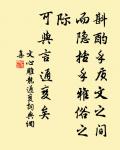 斟酌乎质文之间
而隐括乎雅俗之
际
可与言通变矣
文心雕龙通变词典网
喜